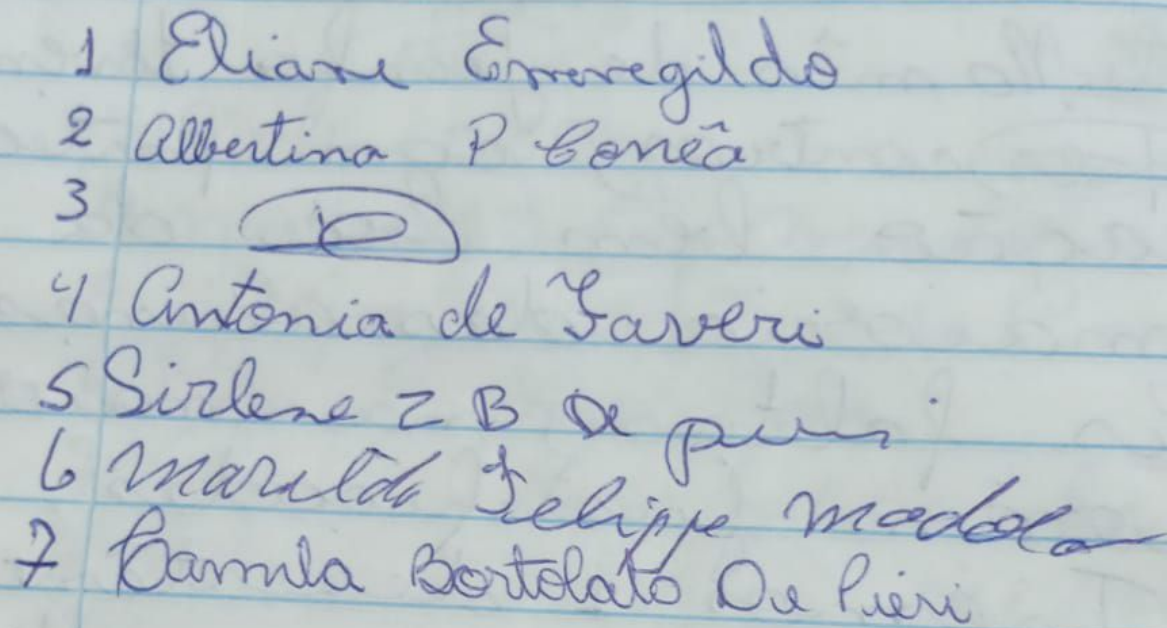 1 Eliane Ermeregildo
2 Albertina P Corrêa
3
4 Antonia de Faveri
5 Sirlene Z B De pieri
6 Marilda Felippe Madola
7 Camila Bortolato De Pieri